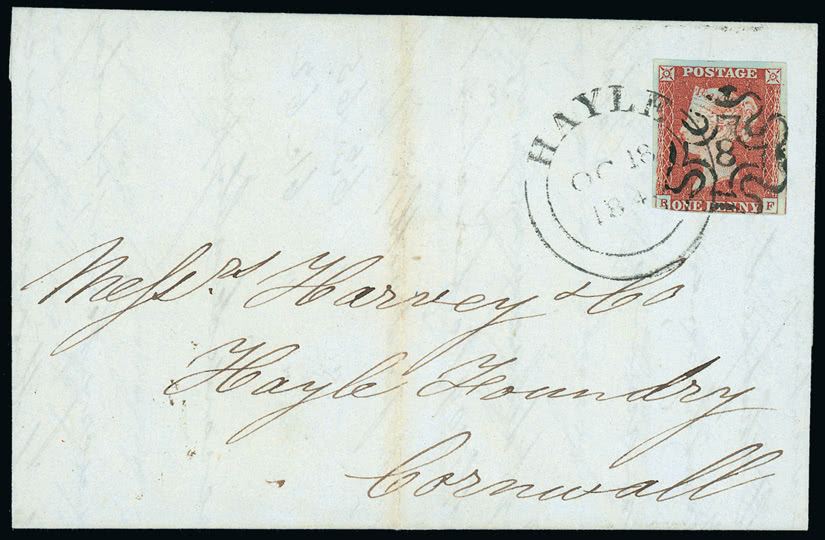 POSTAGE
HAYLE
8
OC 18
184
R ONE PENNY F
Messrs. Harvey & Co
Hayle Foundry
Cornwall